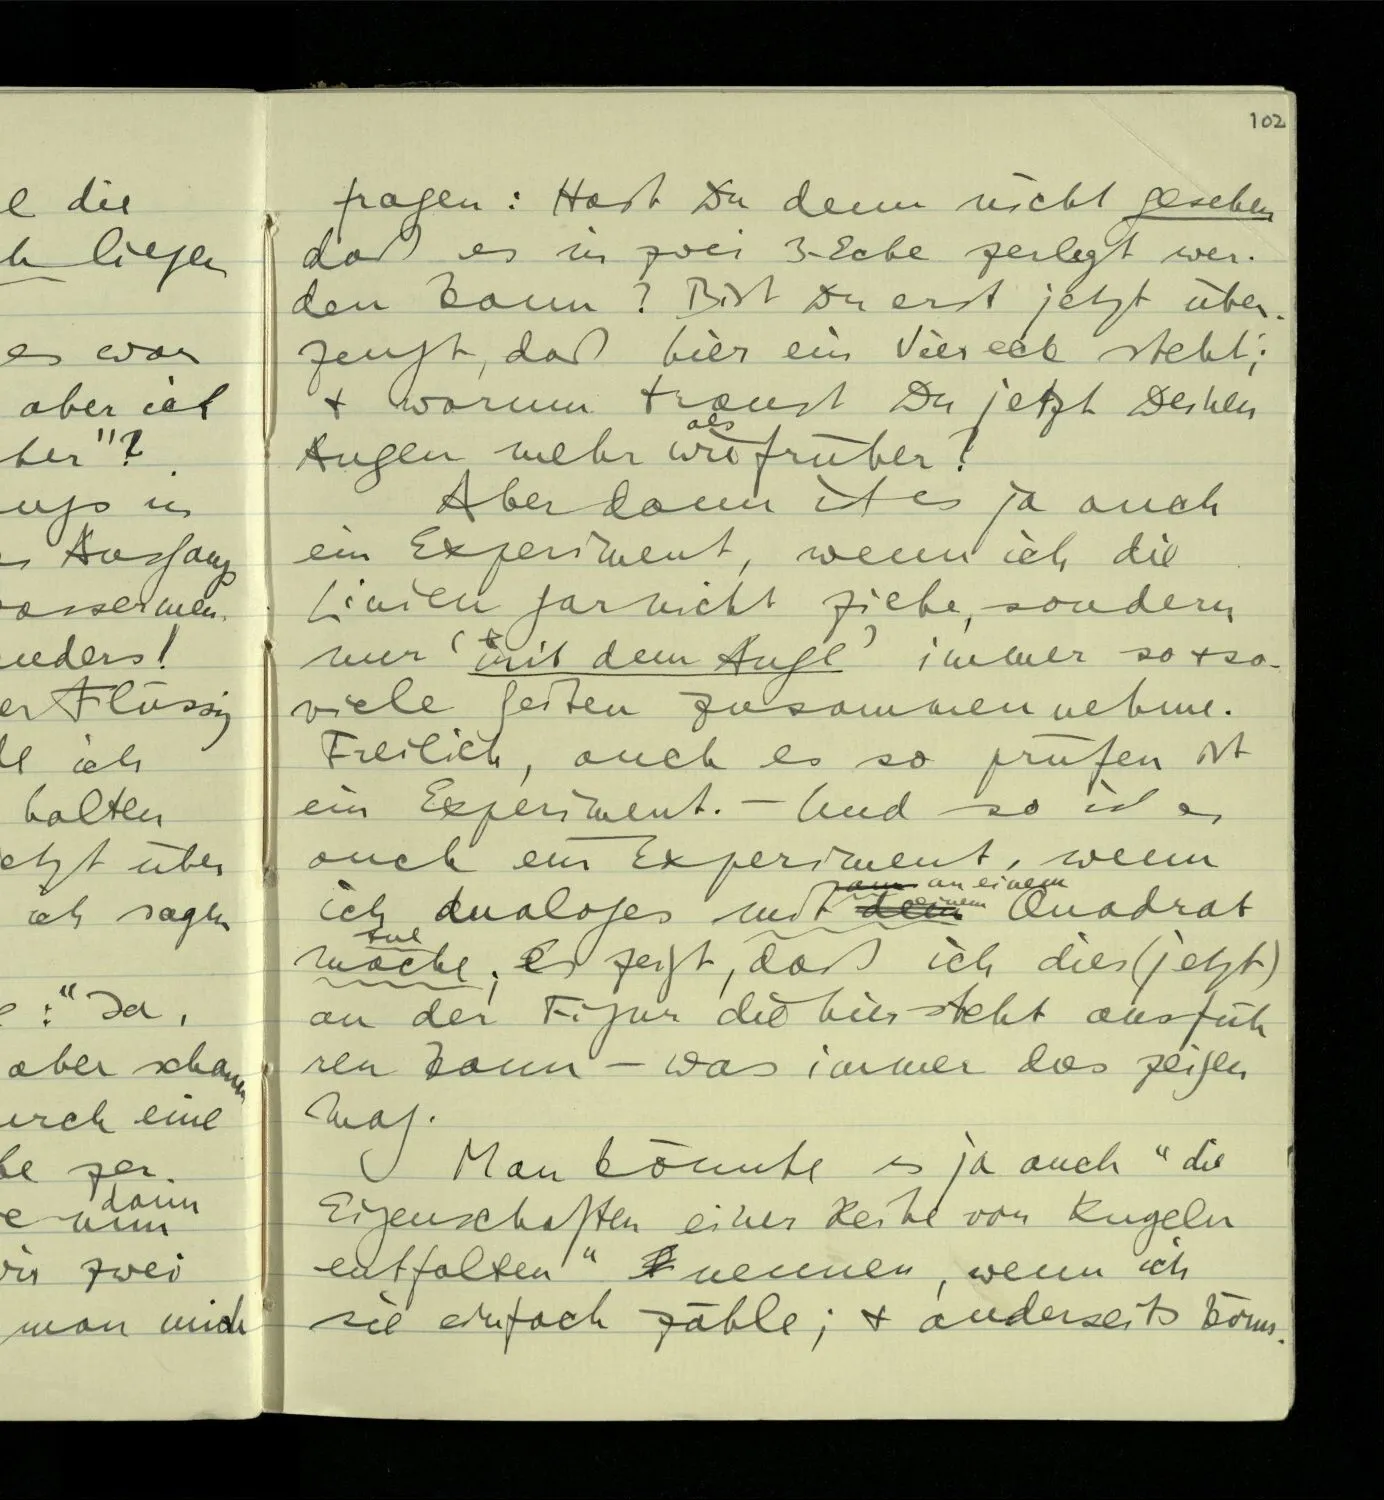 102
l die
h liegen
es war
aber ich
her"?
ugs in
s Ausgang
wassermen.
nders!
er Flüssig
ich
halten
etzt über
ich sagen
: "Ja,
aber schau
urch eine
be zer.
dann
nun
zwei
man mich
fragen: Hast Du denn nicht gesehen
daß es in zwei 3-Ecke zerlegt wer-
den kann? Bist Du erst jetzt über-
zeugt, daß hier ein Viereck steht;
+ warum traust Du jetzt Deinen
als
Augen mehr wie früher?
Aber dann ist es ja auch
ein Experiment, wenn ich die
Linien garnicht ziehe, sondern
nur 'mit dem Auge' immer so + so-
viele Seiten zusammennehme.
Freilich, auch es so prüfen ist
ein Experiment. – Und so ist es
auch ein Experiment, wenn
am an einem
ich analoges mit dem einem Quadrat
tue
mache; es zeigt, daß ich dies (jetzt)
an der Figur die hier steht ausfüh
ren kann – was immer das zeigen
mag.
Man könnte es ja auch "die
Eigenschaften einer Reihe von Kugeln
entfalten" nennen, wenn ich
sie einfach zähle; + anderseits könn-